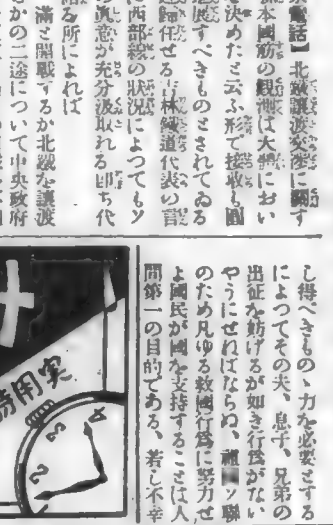 電話】北鐵讓渡交渉に關す
本國筋の觀測は大體におい
決めたと云ふ形で接收も圓
展すべきものとされてゐる
歸任せる 林鐵道代表の言
に西部線の狀況によつてもソ
眞意が充分汲取れる即ち代
る所によれば
滿と開戰するか北鐵を讓渡
かの二途について中央政府
し得べきもの、力を必要とする
によつてその夫、息子、兄弟の
出征を妨げるが如き行爲がない
やうにせねばならぬ、 ソ聯
のため凡ゆる救國行爲に努力せ
よ國民が國を支持することは人
間第一の目的である、若し不幸
サ
実用時